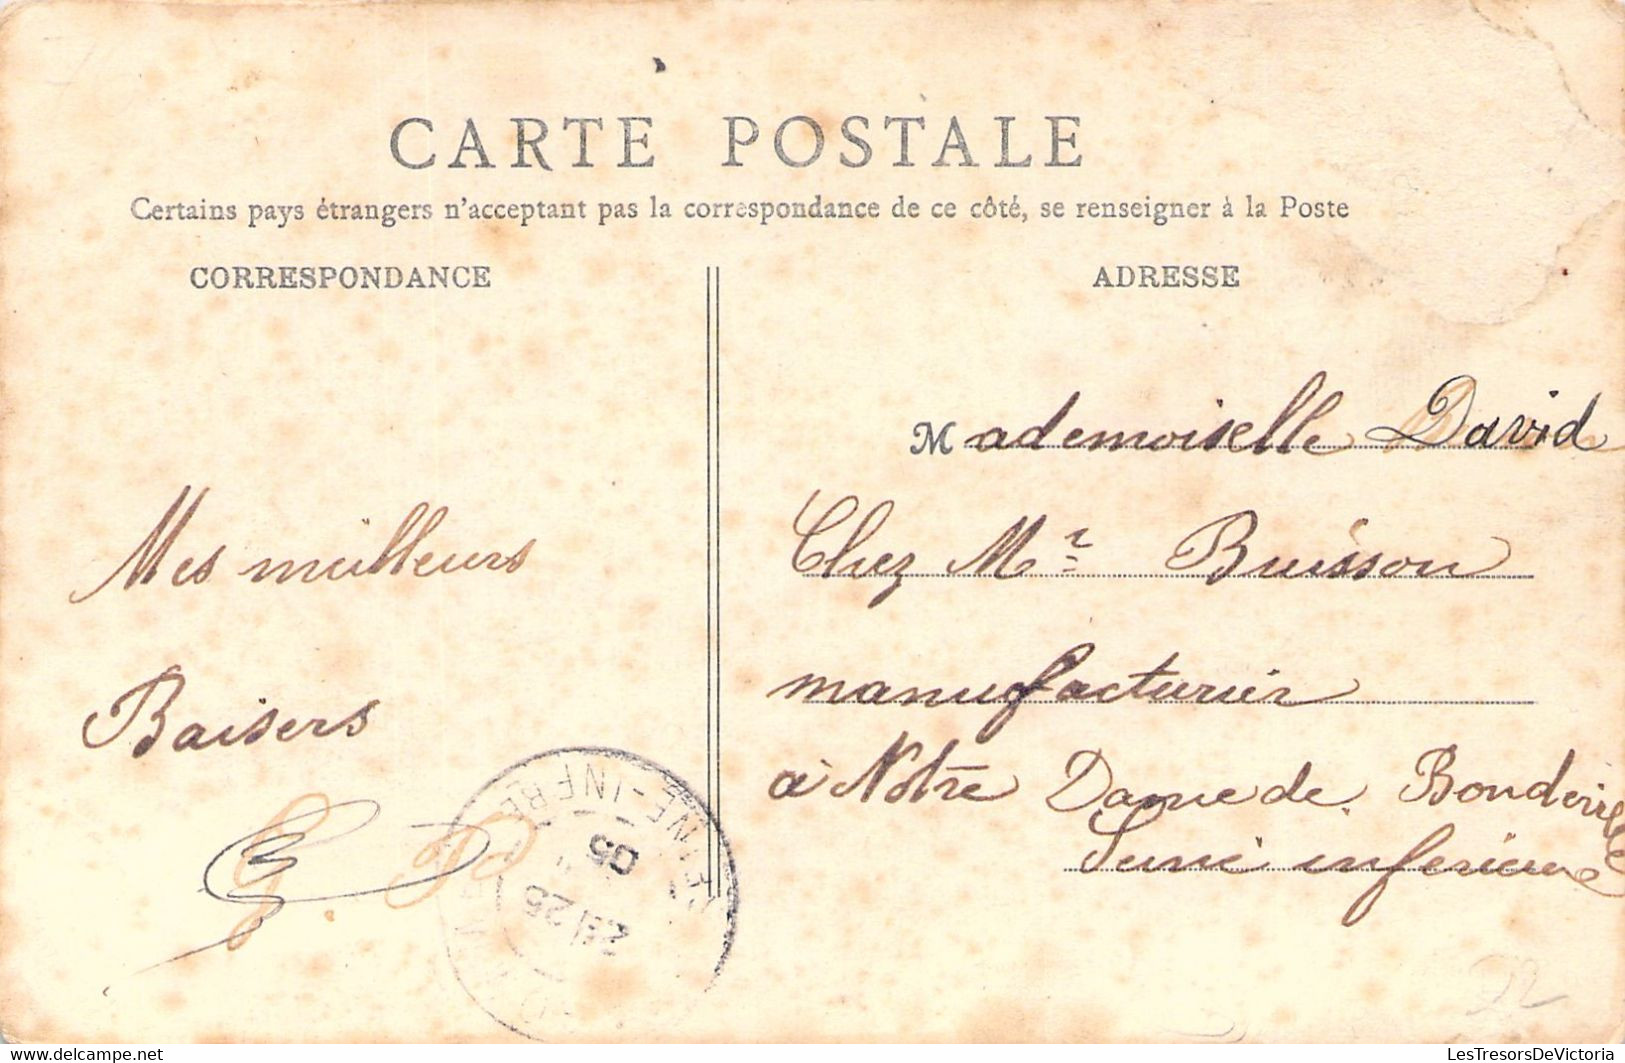 CARTE POSTALE
Certains pays étrangers n'acceptant pas la correspondance de ce côté, se renseigner à la Poste
CORRESPONDANCE
Mes meilleurs
Baisers
ADRESSE
Mademoiselle David
Chez Mr Buisson
manufacturier
à Notre Dame de Bondeville
Seine inferieure
NE-INFRE
25
05
72
LesTresorsDeVictoria
www.delcampe.net